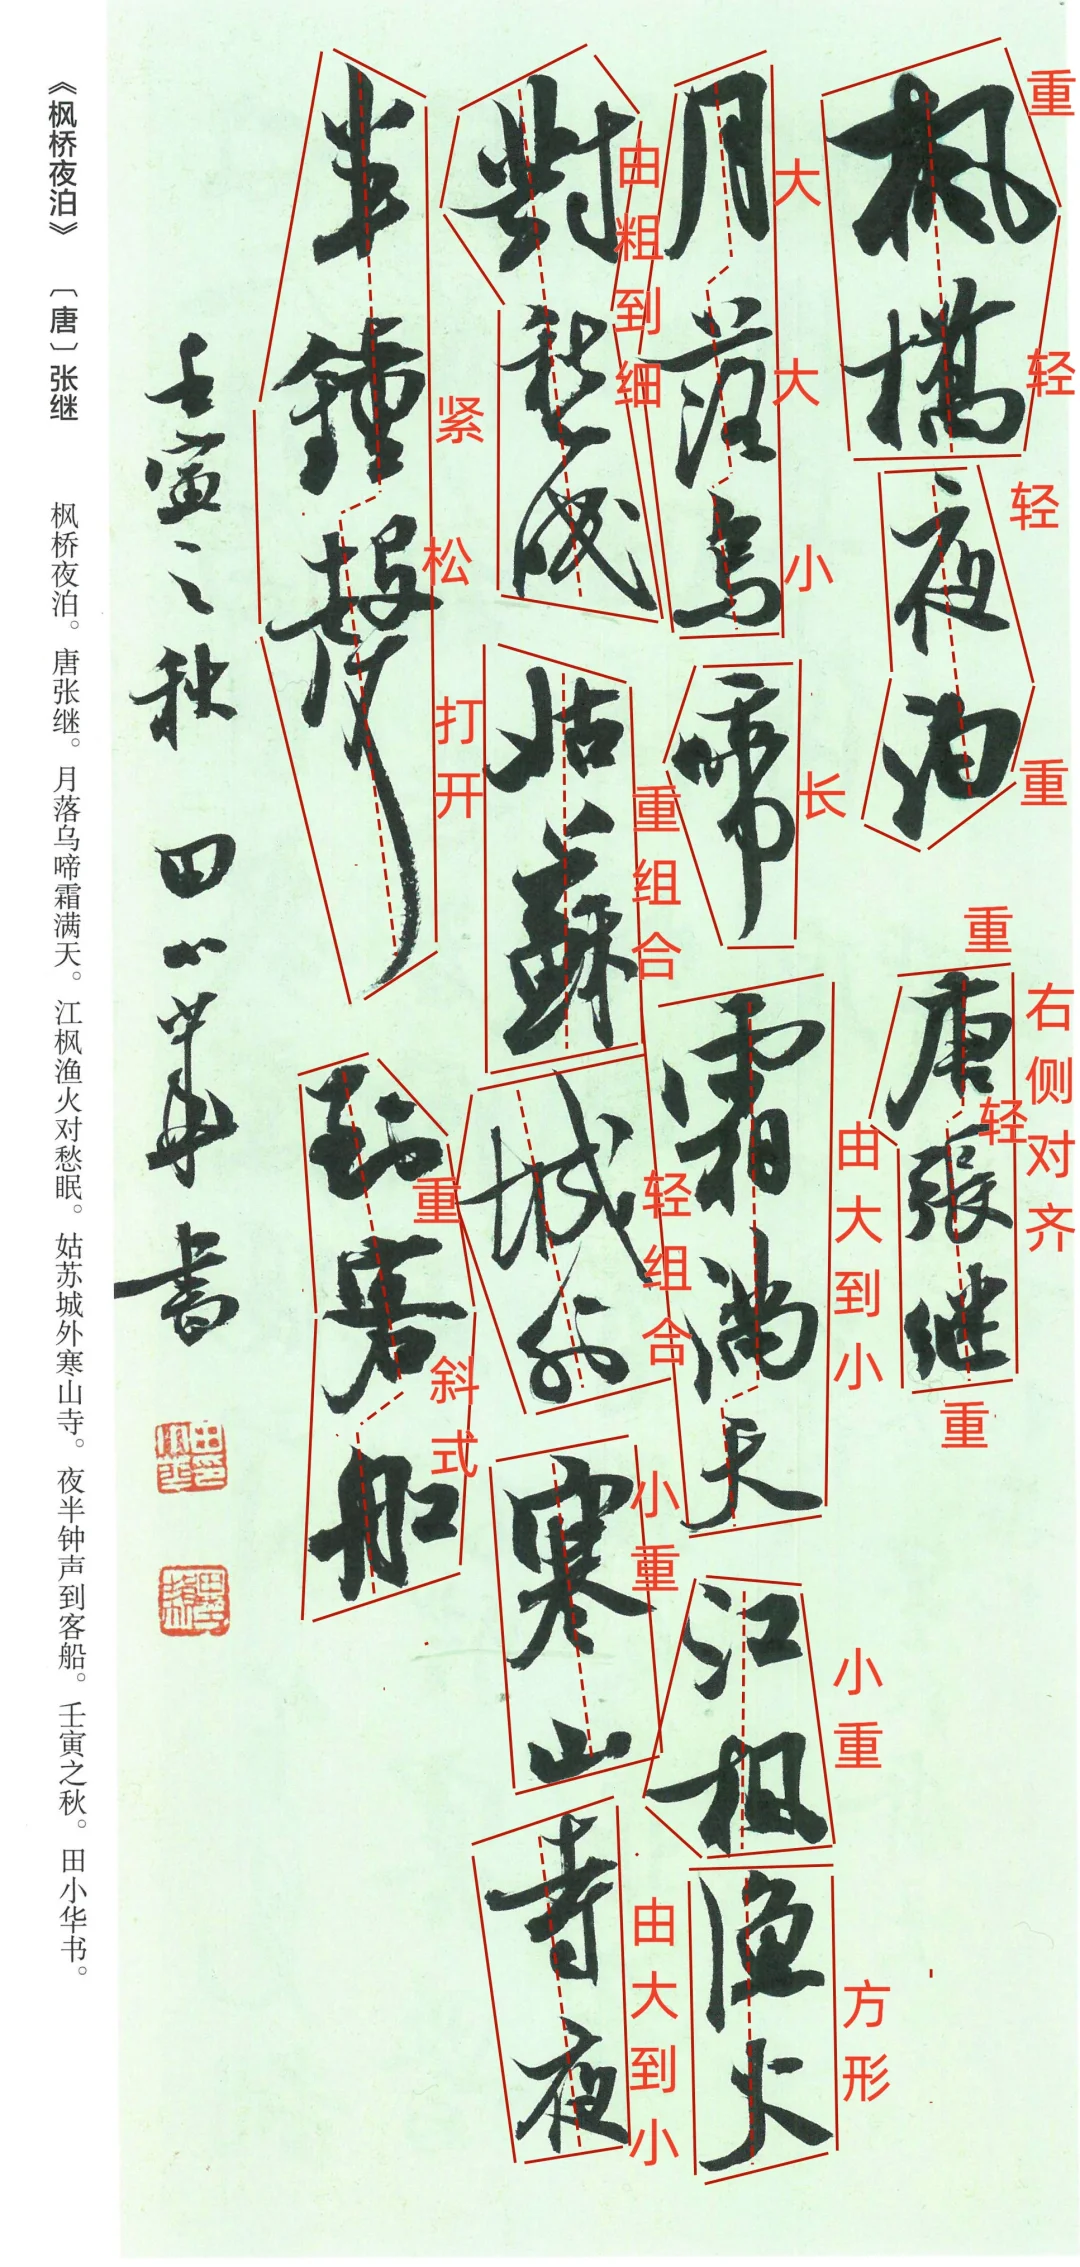 楓橋夜泊
唐張继
重
轻
轻
重
重
右侧对齐
轻
重
月落烏啼霜滿天江楓漁火
大
大
小
长
由大到小
小重
方形
對愁眠姑蘇城外寒山寺夜
由粗到细
重组合
轻组合
小重
由大到小
半鐘聲到客船
紧
松
打开
重
斜式
壬寅之秋 田小華書
《枫桥夜泊》 〔唐〕张继 枫桥夜泊。唐张继。月落乌啼霜满天。江枫渔火对愁眠。姑苏城外寒山寺。夜半钟声到客船。壬寅之秋。田小华书。